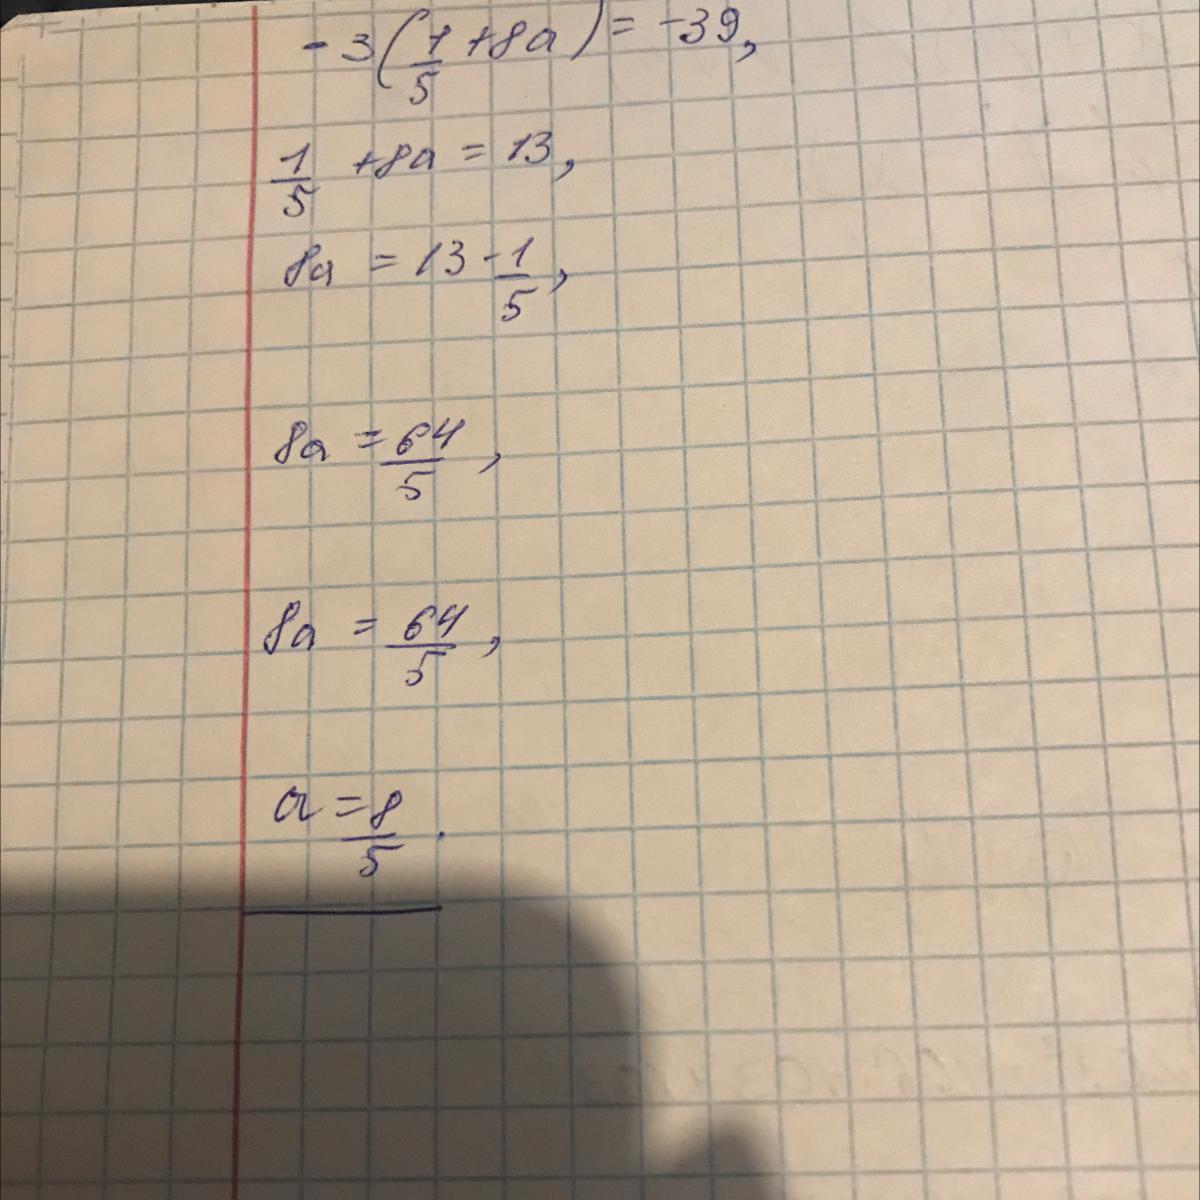 -3(1/5 +8a) = -39,
1/5 +8a = 13,
8a = 13 - 1/5,
8a = 64/5,
8a = 64/5,
a = 8/5.